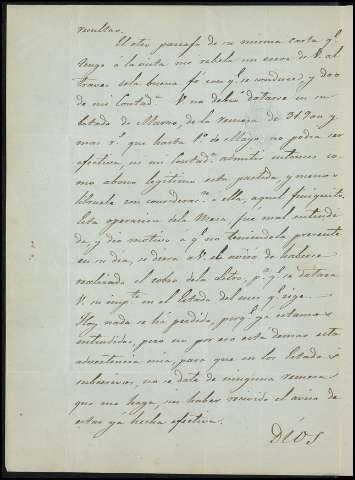 resultas.
El otro parrafo de su misma carta q.e
tengo á la vista me rebela un error de V. al
traves de la buena fé con q.e se conduce, y dos
de mi Contad.a V. no debió datarse en su
Estado de Marzo, de la remesa de 31900 y
mas r.s que hasta 1.o de Mayo no podia ser
efectiva, ni mi Contad.a admitir entonces co-
mo abono legitimo esta partida, y menos
librarle con considerac.n á ella, aquel finiquito.
Esta operacion de la Mesa, fue mal entendi-
da, y dio motivo á q.e no teniendola presente
en su dia, se diera á V. el aviso de haberse
realizado el cobro de la Letra, p.a q.e se datara
V. su imp.te en el Estado del mes q.e rige.
Hoy nada se há perdido, porq.e ya estamos
entendidos, pero no por eso está demas esta
advertencia mia, para que en los Estados
subcesivos, no se date de ninguna remesa
que me haga, sin haber recivido el aviso de
estar yá hecha efectiva.
DIOS